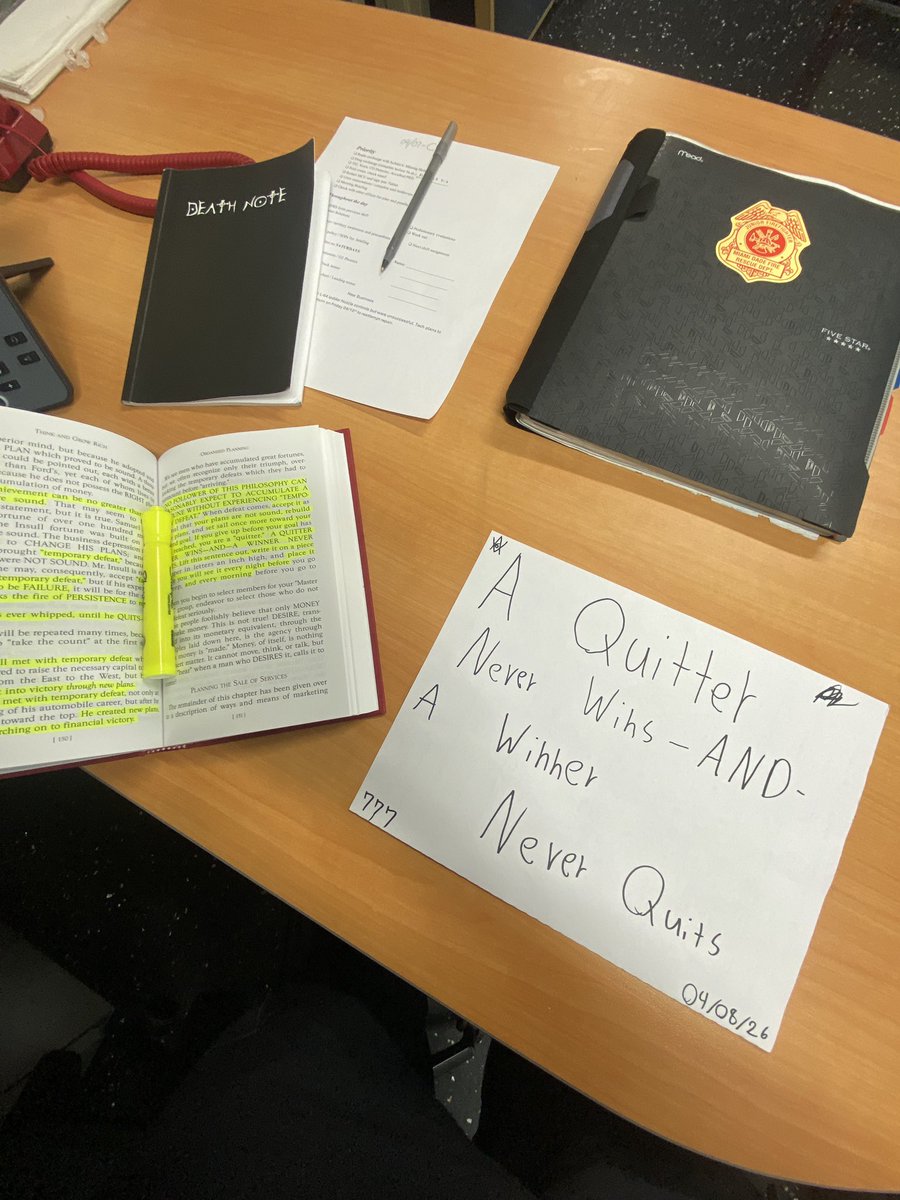 DEATH NOTE
04/07-C
Priority:
Throughout the day
Performance evaluations
Work out
Next shift management
Notes:
New Business
mead.
JUNIOR FIREFIGHTER
MIAMI DADE FIRE
RESCUE DEPT.
FIVE STAR.
THINK AND GROW RICH
perior mind, but because he adopted
PLAN which proved to be sound. A
could be pointed out, each with a
than Ford's, yet each of whom
because he does not possess the RIGHT
cumulation of money.
achievement can be no greater than
are sound. That may seem to
statement, but it is true. Samuel
fortune of over one hundred
The Insull fortune was built on
e sound. The business depression
to CHANGE HIS PLANS;
brought "temporary defeat,"
were NOT SOUND. Mr. Insull is
he may, consequently, accept
temporary defeat," but if his
to be FAILURE, it will be for the
ks the fire of PERSISTENCE to
s ever whipped, until he QUITS
will be repeated many times,
to "take the count" at the first
ill met with temporary defeat
ed to raise the necessary capital to
from the East to the West, but
t into victory through new plans.
met with temporary defeat, not only
g of his automobile career, but after he
toward the top. He created new plans,
arching on to financial victory.
[ 150 ]
ORGANIZED PLANNING
We see men who have accumulated great fortunes,
we often recognize only their triumph, over-
the temporary defeats which they had to
before "arriving."
NO FOLLOWER OF THIS PHILOSOPHY CAN
REASONABLY EXPECT TO ACCUMULATE A
WITHOUT EXPERIENCING "TEMPO-
DEFEAT." When defeat comes, accept it as
that your plans are not sound, rebuild
plans, and set sail once more toward your
goal. If you give up before your goal has
reached, you are a "quitter." A QUITTER
WINS—AND—A WINNER NEVER
Lift this sentence out, write it on a piece
in letters an inch high, and place it
you will see it every night before you go
and every morning before you go to
you begin to select members for your "Master
endeavor to select those who do not
defeat seriously.
people foolishly believe that only MONEY
make money. This is not true! DESIRE, trans-
into its monetary equivalent, through the
laid down here, is the agency through
money is "made." Money, of itself, is nothing
matter. It cannot move, think, or talk, but
"hear" when a man who DESIRES it, calls it to
PLANNING THE SALE OF SERVICES
The remainder of this chapter has been given over
a description of ways and means of marketing
[ 151 ]
A Quitter
Never Wins - AND -
A Winner
Never Quits
777
04/08/26